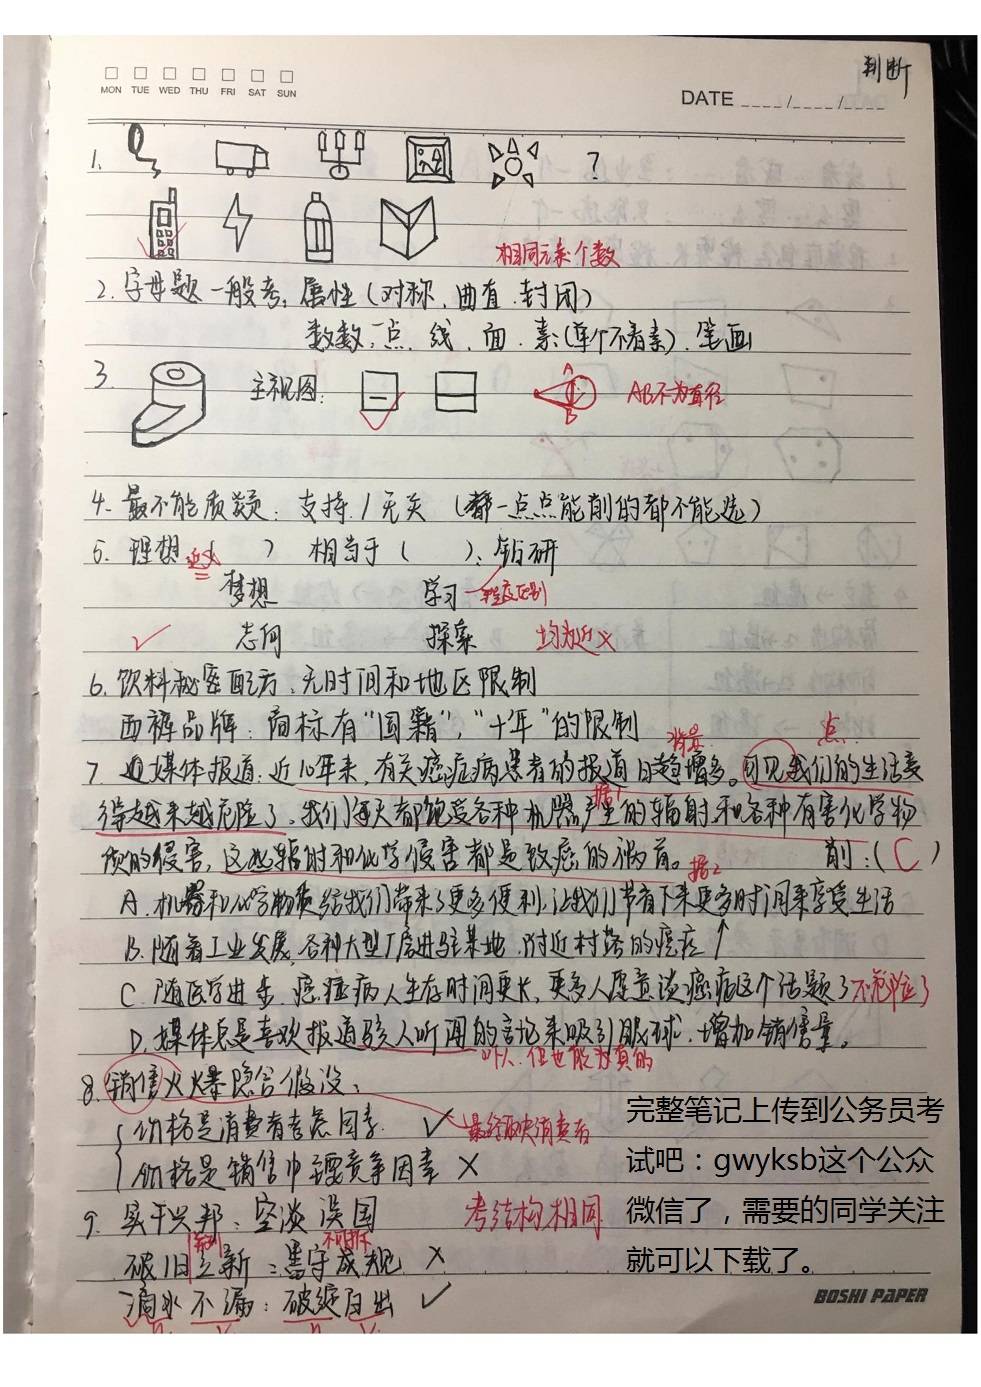 判断
MON TUE WED THU FRI SAT SUN
DATE ____/____/____
1. ?
相同元素个数
2. 字母题一般考: 属性(对称、曲直、封闭)
数数: 点、线、面、素(单个不看素)、笔画
3. 主视图: A B AB不为直径
4. 最不能质疑: 支持/无关 (都一点点能削的都不能选)
5. 理想( ) 相当于( ): 钻研
近义
梦想 学习 程度区别
✓ 志向 探索 均为近义
6. 饮料秘密配方: 无时间和地区限制
西裤品牌: 商标有“国籍”,“十年”的限制
背景 点
7. 据媒体报道: 近10年来,有关癌症病患者的报道日趋增多。可见我们的生活变
得越来越危险了,我们每天都饱受各种机器产生的辐射和各种有害化学物
据1
质的侵害,这些辐射和化学侵害都是致癌的祸首。 削:(C)
据2
A. 机器和化学物质给我们带来了更多便利,让我们节省下来更多时间来享受生活
B. 随着工业发展,各种大型厂房进驻某地,附近村落的癌症↑
C. 随医学进步,癌症病人生存时间更长,更多人愿意谈癌症这个话题了 不危险了
D. 媒体总是喜欢报道骇人听闻的言论来吸引眼球,增加销售量。
吓人,但也能为真的
8. 销售火爆隐含假设:
价格是消费者考虑因素 ✓ 最终取决消费者
价格是销售中主要竞争因素 ×
9. 实干兴邦: 空谈误国 考结构相同
并列 不可拆
破旧立新: 墨守成规 ×
滴水不漏: 破绽百出 ✓
n. v. n. v.
完整笔记上传到公务员考
试吧:gwyksb这个公众
微信了,需要的同学关注
就可以下载了。
BOSHI PAPER